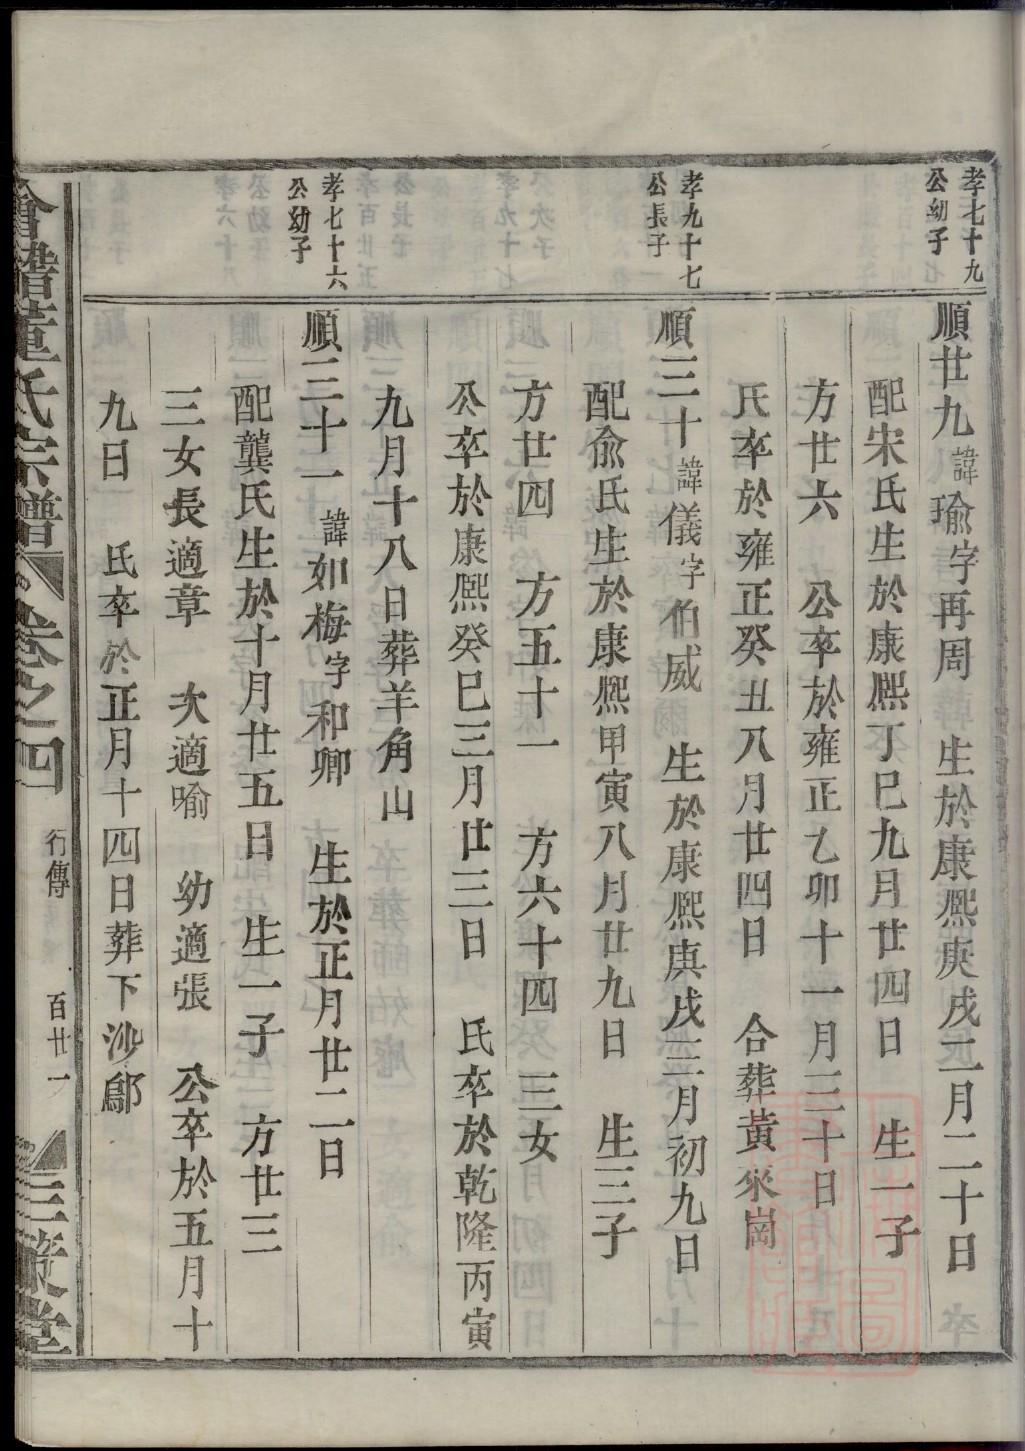 孝七十九
公幼子
順廿九諱瑜字再周 生於康熙庚戌二月二十日
配宋氏生於康熙丁巳九月廿四日 生一子
方廿六 公卒於雍正乙卯十一月三十日
氏卒於雍正癸丑八月廿四日 合葬黃泶崗
孝九十七
公長子
順三十諱儀字伯威 生於康熙庚戌三月初九日
配俞氏生於康熙甲寅八月廿九日 生三子
方廿四 方五十一 方六十四 三女
公卒於康熙癸巳三月廿三日 氏卒於乾隆丙寅
九月十八日葬羊角山
孝七十六
公幼子
順三十一諱如梅字和卿 生於正月廿二日
配龔氏生於十月廿五日 生一子 方廿三
三女長適章 次適喻 幼適張 公卒於五月十
九日 氏卒於正月十四日葬下沙鄔
會稽董氏宗譜 卷之四 行傳 百廿一 三策堂